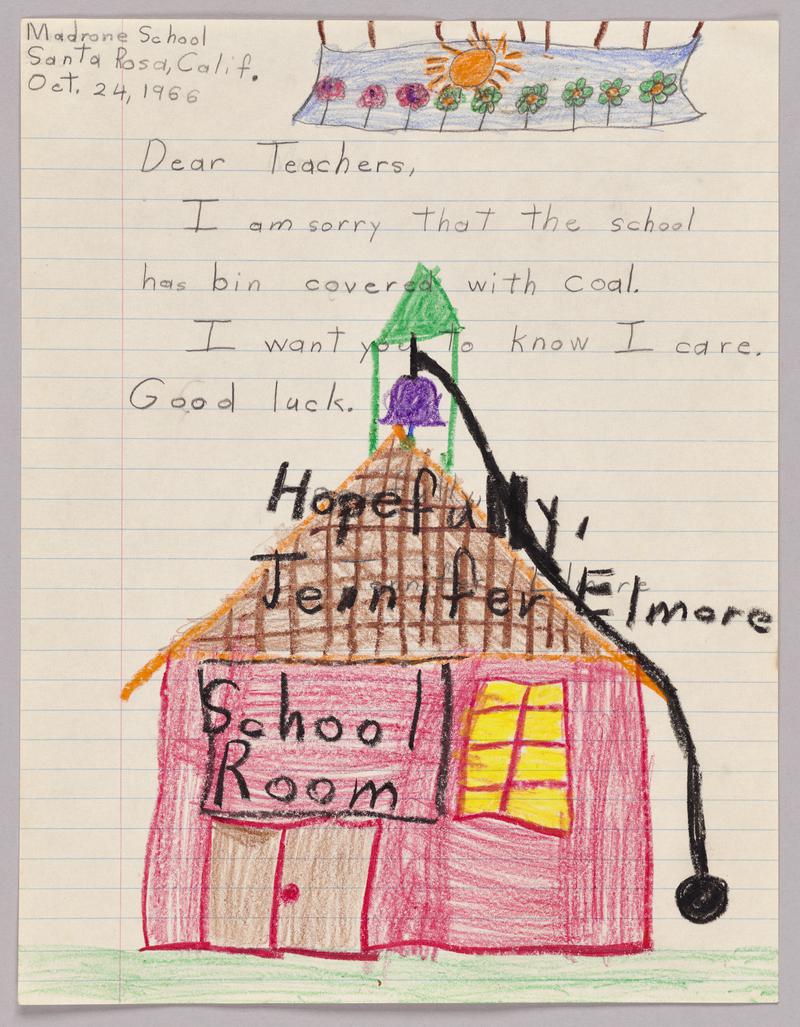 Madrone School
Santa Rosa, Calif.
Oct. 24, 1966
Dear Teachers,
I am sorry that the school
has bin covered with coal.
I want you to know I care.
Good luck.
Hopefully,
Jennifer Elmore
School
Room